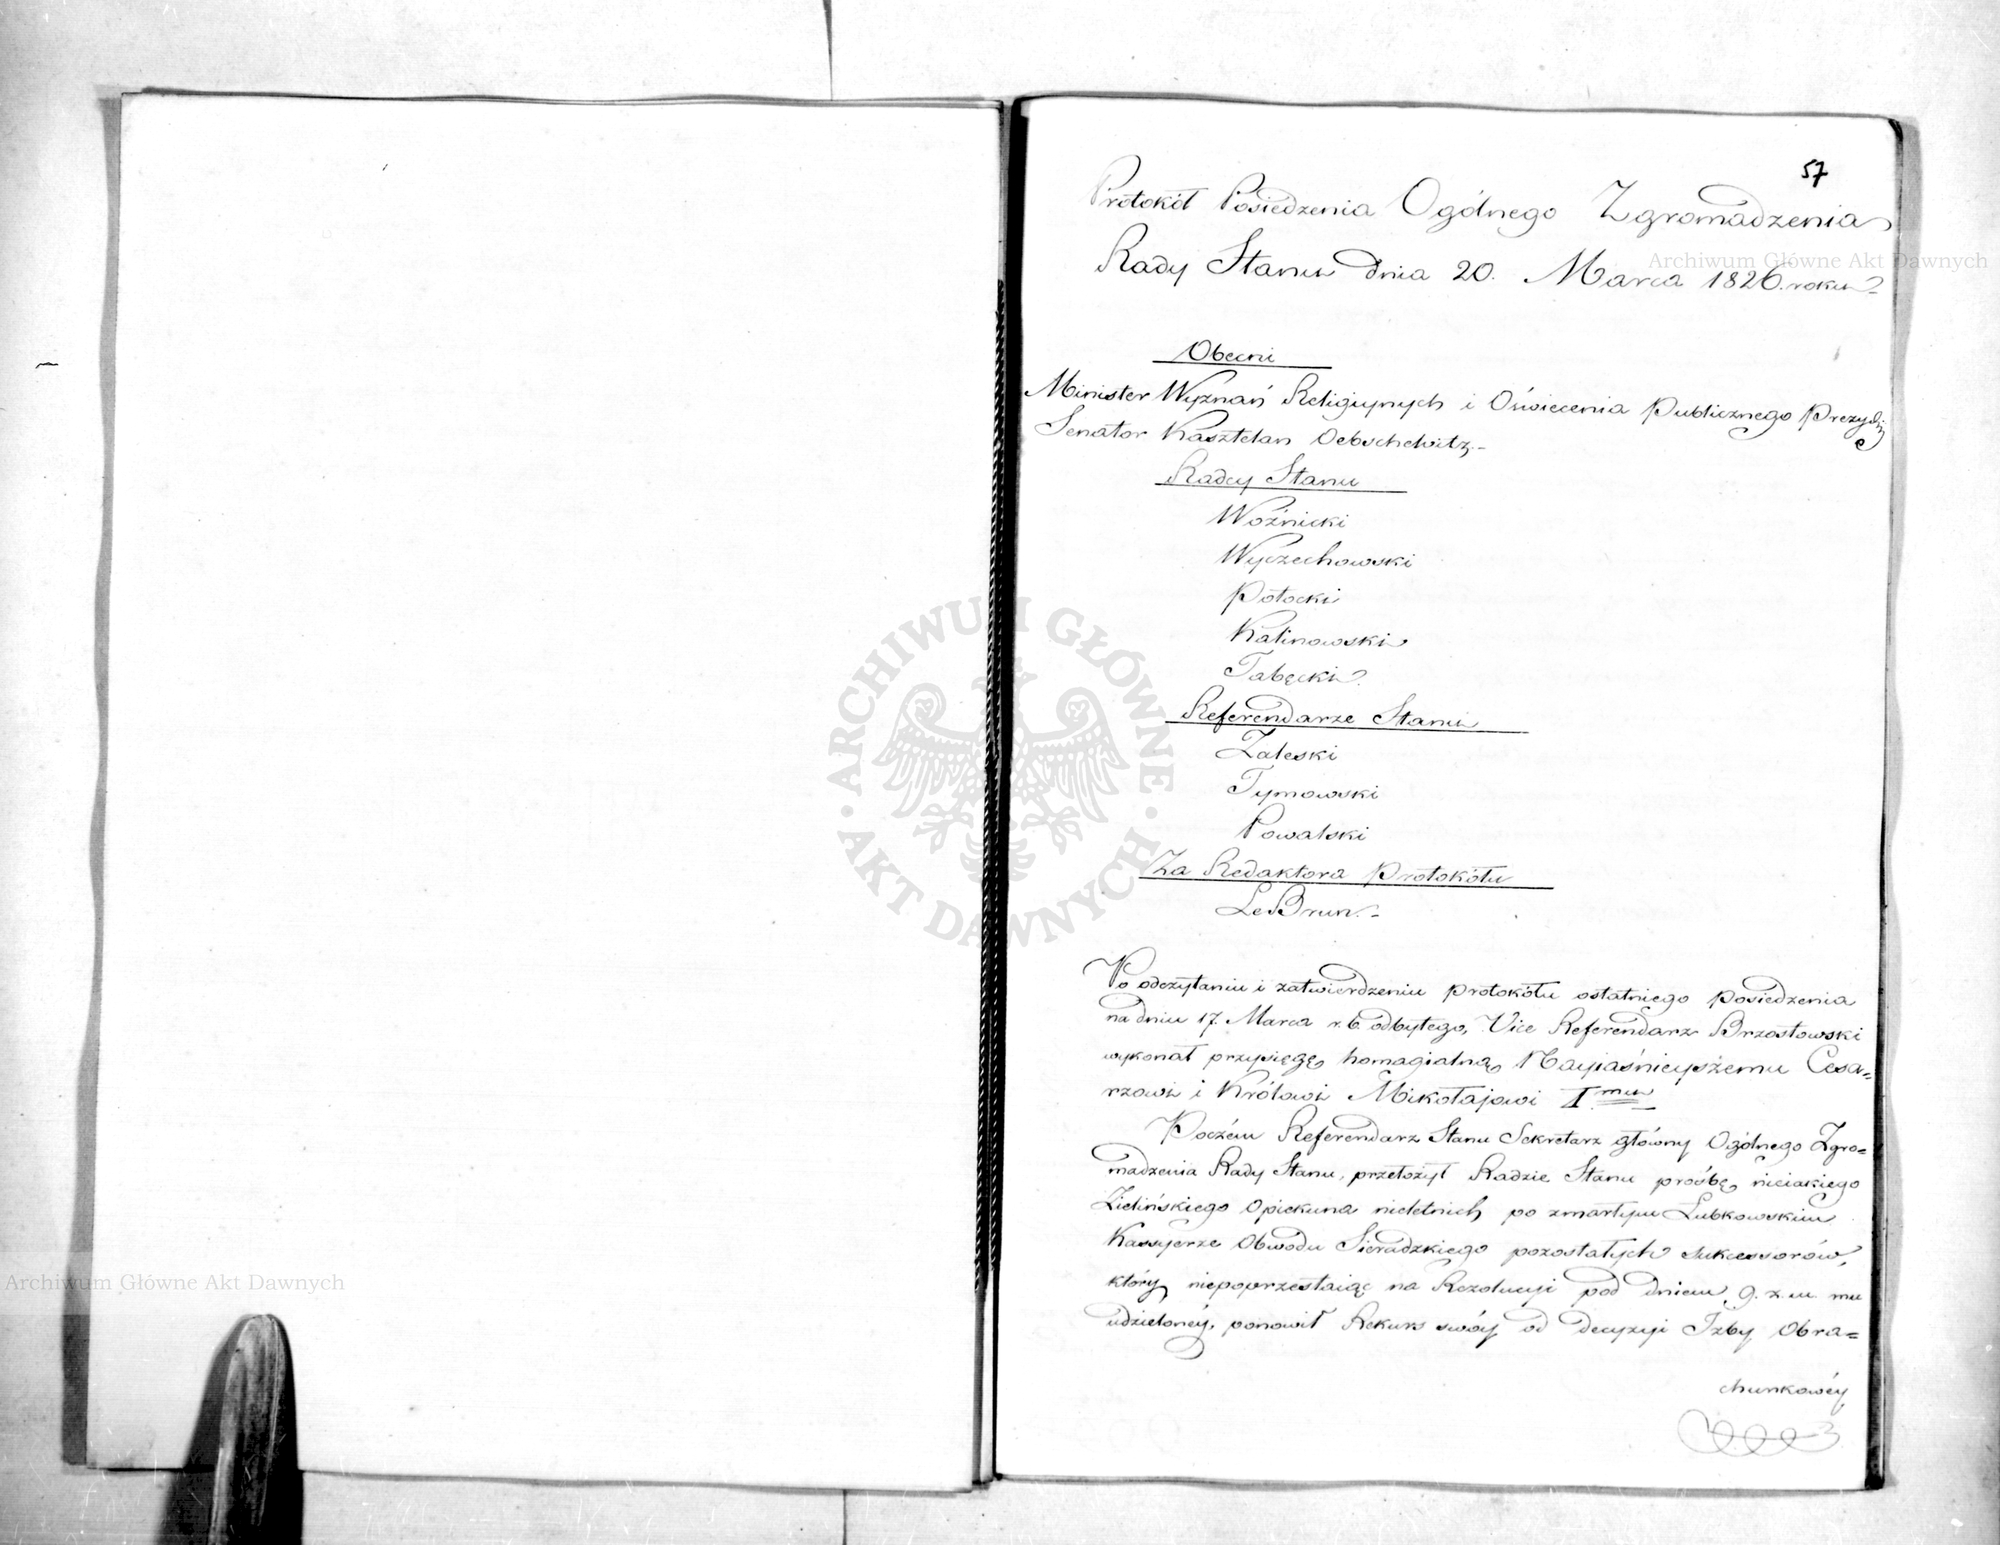 57
Protokół Posiedzenia Ogólnego Zgromadzenia
Rady Stanu dnia 20. Marca 1826. roku
Archiwum Główne Akt Dawnych
Obecni
Minister Wyznań Religiynych i Oświecenia Publicznego
Senator Kasztelan Oebschelwitz.-
Radcy Stanu
Woźnicki
Wyczechowski
Potocki
Kalinowski
Tabęcki.
Referendarze Stanu
Zaleski
Tymowski
Powalski
Za Redaktora Protokółu
LeBrun.-
ARCHIWUM GŁÓWNE AKT DAWNYCH
Po odczytaniu i zatwierdzeniu protokółu ostatniego posiedzenia
na dniu 17. Marca r. b. odbytego, Vice Referendarz Brzostowski
wykonał przysięgę homagialną Nayiaśnieyszemu Cesa=
rzowi i Królowi Mikołajowi I mu
Poczém Referendarz Stanu Sekretarz główny Ogólnego Zgro=
madzenia Rady Stanu, przełożył Radzie Stanu prośbę nieiakiego
Zielińskiego Opiekuna nieletnich po zmarłym Lubkowskim
Kassyerze Obwodu Sieradzkiego pozostałych sukcessorów,
który, niepoprzestaiąc na Rezolucyi pod dniem 9. z. m. mu
udzielonéy, ponowił Rekurs swóy od decyzyi Izby Obra=
chunkowéy
Archiwum Główne Akt Dawnych